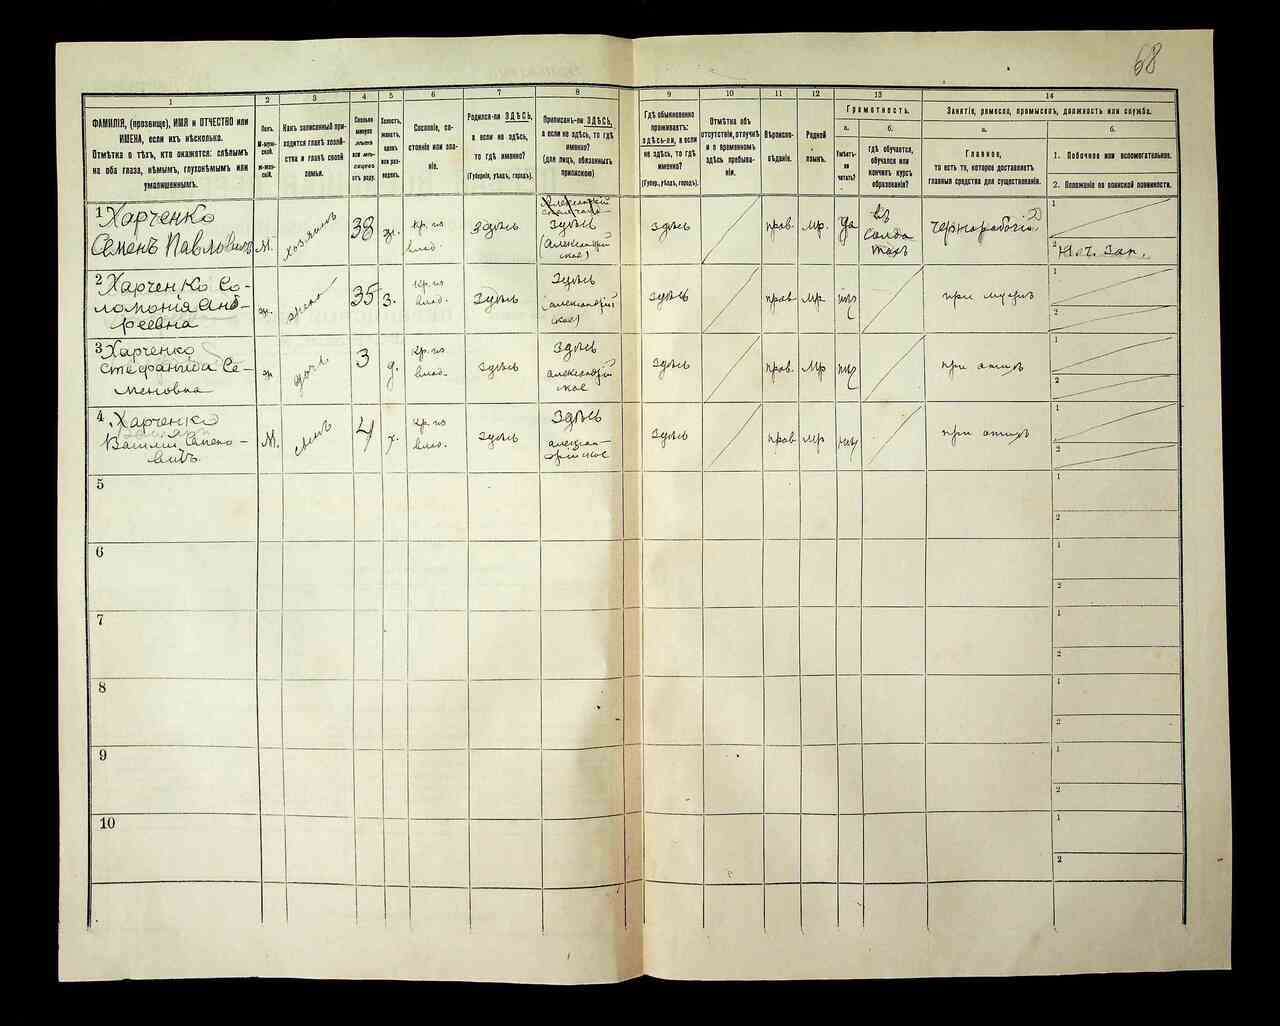 68
1
2
3
4
5
6
7
8
9
10
11
12
13
14
ФАМИЛІЯ, (прозвище), ИМЯ и ОТЧЕСТВО или
ИМЕНА, если ихъ нѣсколько.
Отмѣтка о тѣхъ, кто окажется: слѣпымъ
на оба глаза, нѣмымъ, глухонѣмымъ или
умалишеннымъ.
Полъ.
М-муж-
ской.
Ж-жен-
скій.
Какъ записанный при-
ходится главѣ хозяй-
ства и главѣ своей
семьи.
Сколько
минуло
лѣтъ
или мѣ-
сяцевъ
отъ роду.
Холостъ,
женатъ,
вдовъ
или раз-
веденъ.
Сословіе, со-
стояніе или зва-
ніе.
Родился-ли ЗДѢСЬ,
а если не здѣсь,
то гдѣ именно?
(Губернія, уѣздъ, городъ).
Приписанъ-ли ЗДѢСЬ,
а если не здѣсь, то гдѣ
именно?
(для лицъ, обязанныхъ
припискою)
Гдѣ обыкновенно
проживаетъ:
здѣсь-ли, а если
не здѣсь, то гдѣ
именно?
(Губер., уѣздъ, городъ).
Отмѣтка объ
отсутствіи, отлучкѣ
и о временномъ
здѣсь пребыва-
ніи.
Вѣроиспо-
вѣданіе.
Родной
языкъ.
Грамотность.
а.
б.
Умѣетъ-
ли
читать?
гдѣ обучается,
обучался или
кончилъ курсъ
образованія?
Занятіе, ремесло, промыселъ, должность или служба.
а.
б.
Главное,
то есть то, которое доставляетъ
главныя средства для существованія.
1. Побочное или вспомогательное.
2. Положеніе по воинской повинности.
1 Харченко
Семенъ Павловичъ
М.
хозяинъ
38
ж.
кр. из
влад.
здѣсь
здѣсь
(Александрій
ское)
здѣсь
прав.
Мр.
да
въ
солда
тахъ
чернорабочій
1
2
2 Харченко Со-
ломонія Анд-
реевна
ж.
жена
35
з.
кр. из
влад.
здѣсь
здѣсь
(александрій
ское)
здѣсь
прав
Мр
при мужѣ
1
2
3 Харченко
Стефанида Се-
меновна
ж
дочь
3
д.
кр. из
влад.
здѣсь
здѣсь
александрій
ское
здѣсь
прав.
Мр
при отцѣ
1
2
4 Харченко
Василій Семено-
вичъ
М.
сынъ
4
х.
кр. из
влад.
здѣсь
здѣсь
алексан-
дрійское
здѣсь
прав
Мр
при отцѣ
1
2
5
1
2
6
1
2
7
1
2
8
1
2
9
1
2
10
1
2